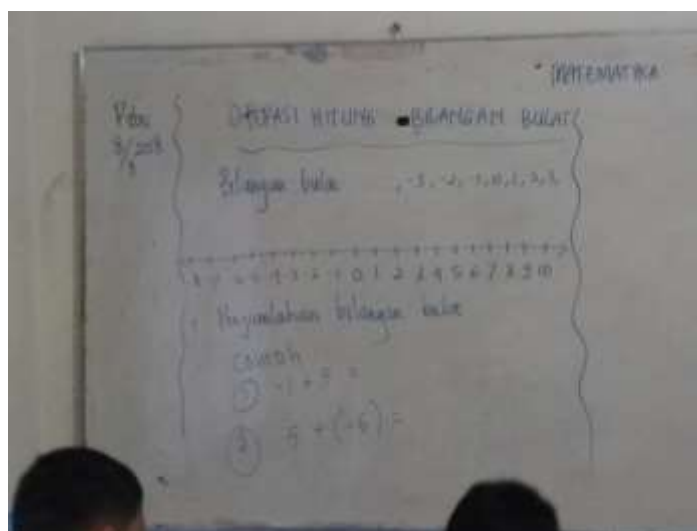 MATEMATIKA
Rabu
OPERASI HITUNG BILANGAN BULAT
Bilangan bulat , -3, -2, -1, 0, 1, 2, 3,
0 1 2 3 4 5 6 7 8 9 10
Penjumlahan bilangan bulat
contoh
①
② 5 + (-6) =